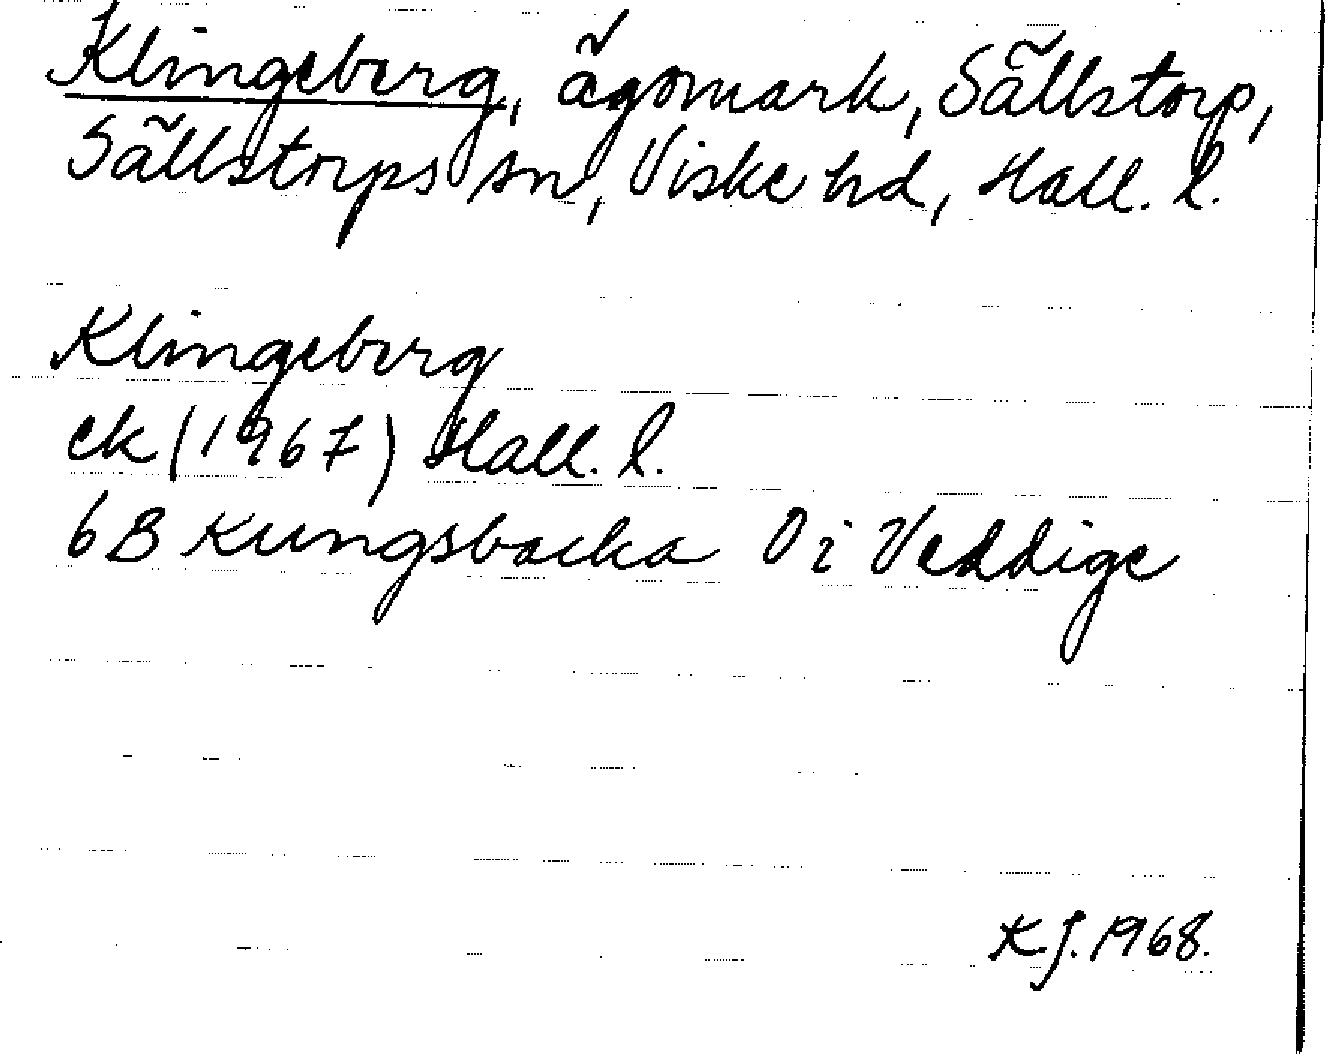 Klingeberg, ägomark, Sällstorp,
Sällstorps sn, Viske hd, Hall. l.
Klingeberg
ek (1967) Hall. l.
6B Kungsbacka O i Veddige
KJ. 1968.